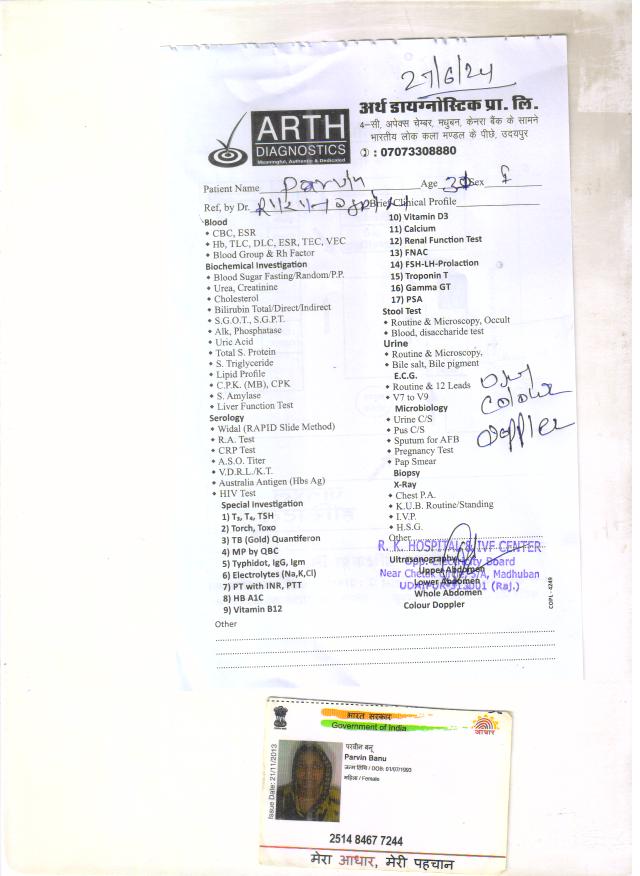 27/6/24
ARTH
DIAGNOSTICS
Meaningful, Authentic & Dedicated
अर्थ डायग्नोस्टिक प्रा. लि.
4-सी, अपेक्स चेम्बर, मधुबन, केनरा बैंक के सामने
भारतीय लोक कला मण्डल के पीछे, उदयपुर
: 07073308880
Patient Name Parvin Age Sex F
Ref, by Dr. Brief Clinical Profile
Blood
• CBC, ESR
• Hb, TLC, DLC, ESR, TEC, VEC
• Blood Group & Rh Factor
Biochemical Investigation
• Blood Sugar Fasting/Random/P.P.
• Urea, Creatinine
• Cholesterol
• Bilirubin Total/Direct/Indirect
• S.G.O.T., S.G.P.T.
• Alk, Phosphatase
• Uric Acid
• Total S. Protein
• S. Triglyceride
• Lipid Profile
• C.P.K. (MB), CPK
• S. Amylase
• Liver Function Test
Serology
• Widal (RAPID Slide Method)
• R.A. Test
• CRP Test
• A.S.O. Titer
• V.D.R.L./K.T.
• Australia Antigen (Hbs Ag)
• HIV Test
Special Investigation
1) T₃, T₄, TSH
2) Torch, Toxo
3) TB (Gold) Quantiferon
4) MP by QBC
5) Typhidot, IgG, Igm
6) Electrolytes (Na,K,Cl)
7) PT with INR, PTT
8) HB A1C
9) Vitamin B12
10) Vitamin D3
11) Calcium
12) Renal Function Test
13) FNAC
14) FSH-LH-Prolaction
15) Troponin T
16) Gamma GT
17) PSA
Stool Test
• Routine & Microscopy, Occult
• Blood, disaccharide test
Urine
• Routine & Microscopy,
• Bile salt, Bile pigment
E.C.G.
• Routine & 12 Leads
• V7 to V9
Microbiology
• Urine C/S
• Pus C/S
• Sputum for AFB
• Pregnancy Test
• Pap Smear
Biopsy
X-Ray
• Chest P.A.
• K.U.B. Routine/Standing
• I.V.P.
• H.S.G.
Other
Ultrasonography
Upper Abdomen
Lower Abdomen
Whole Abdomen
Colour Doppler
Colour
Doppler
R. K. HOSPITAL & IVF CENTER
Opp. Electricity Board
Near Chetak Circle, 5/A, Madhuban
UDAIPUR-313001 (Raj.)
COPL - 4249
Other
भारत सरकार
Government of India
आधार
Issue Date: 21/11/2013
परवीन बनू
Parvin Banu
जन्म तिथि / DOB: 01/07/1993
महिला / Female
2514 8467 7244
मेरा आधार, मेरी पहचान